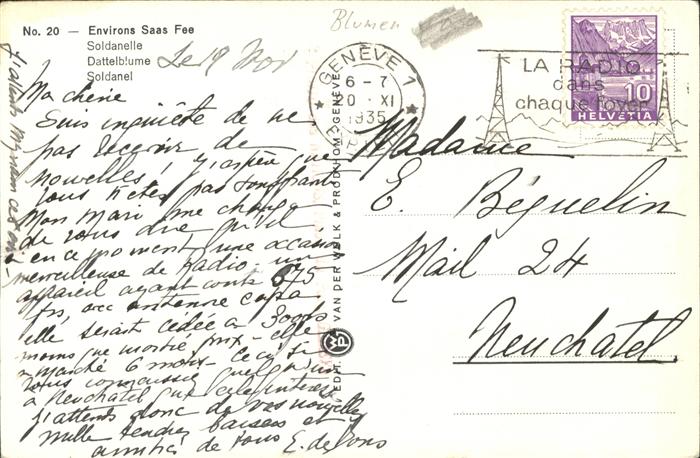 No. 20 — Environs Saas Fee
Soldanelle
Dattelblume
Soldanel
Blumen
Le 19 Nov
Ma chérie
Suis inquiète de ne
pas recevoir de
nouvelles, j'espère que
vous n'êtes pas souffrante
Mon Mari me charge
de vous dire qu'il
a en ce moment une occasion
merveilleuse de Radio - un
appareil ayant couté 675
frs, avec antenne
elle serait cédée à 300 frs
moins que moitié prix - elle
a marché 6 mois - Ceci si
vous connaissiez quelqu'un
à Neuchatel que cela intéresse
J'attends donc de vos nouvelles
Mille tendres baisers et
amitiés de tous E. de
J'attends
EDIT. VAN DER WALK & PRODHOM GENÈVE
GENÈVE 1
6-7
XI
1935
LA RADIO
dans
chaque foyer
10
HELVETIA
Madame
E. Béguelin
Mail 24
Neuchatel